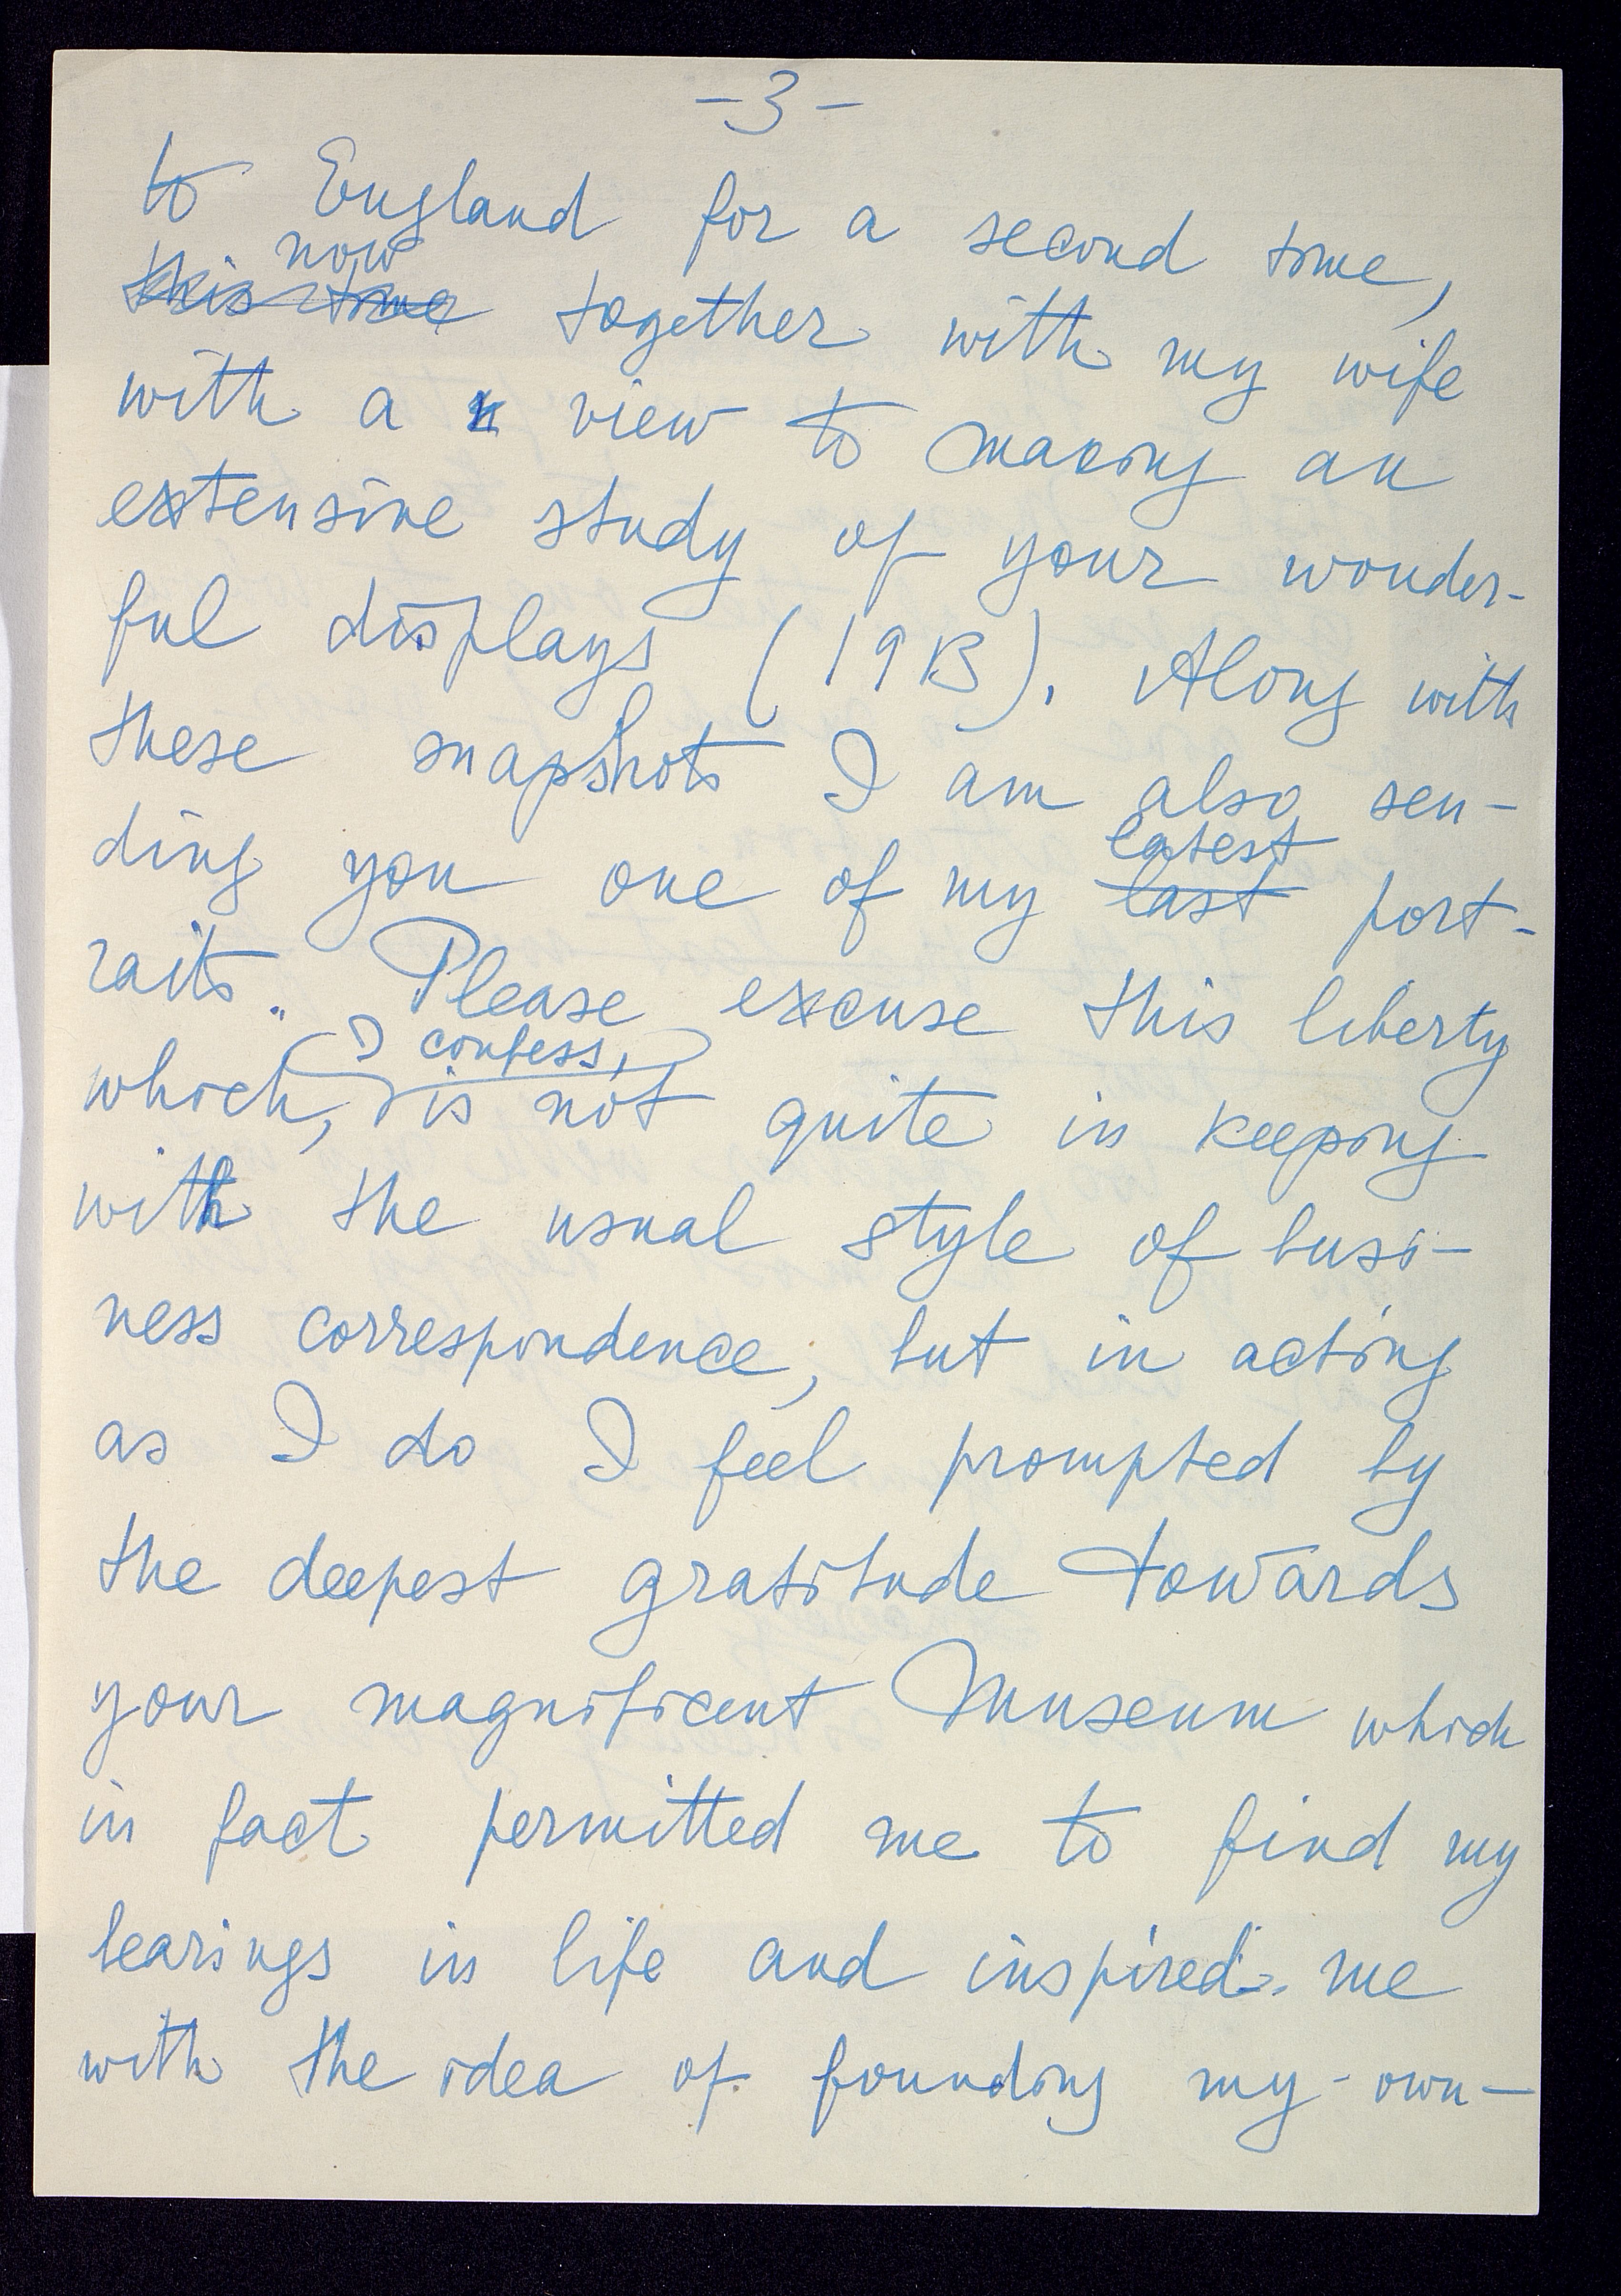 -3-
to England for a second time,
now
this time together with my wife
with a view to making an
extensive study of your wonder-
ful displays (1913). Along with
these snapshots I am also sen-
latest
ding you one of my last port-
raits. Please excuse this liberty
I confess,
which, is not quite in keeping
with the usual style of busi-
ness correspondence, but in acting
as I do I feel prompted by
the deepest gratitude towards
your magnificent Museum which
in fact permitted me to find my
bearings in life and inspired me
with the idea of founding my-own-